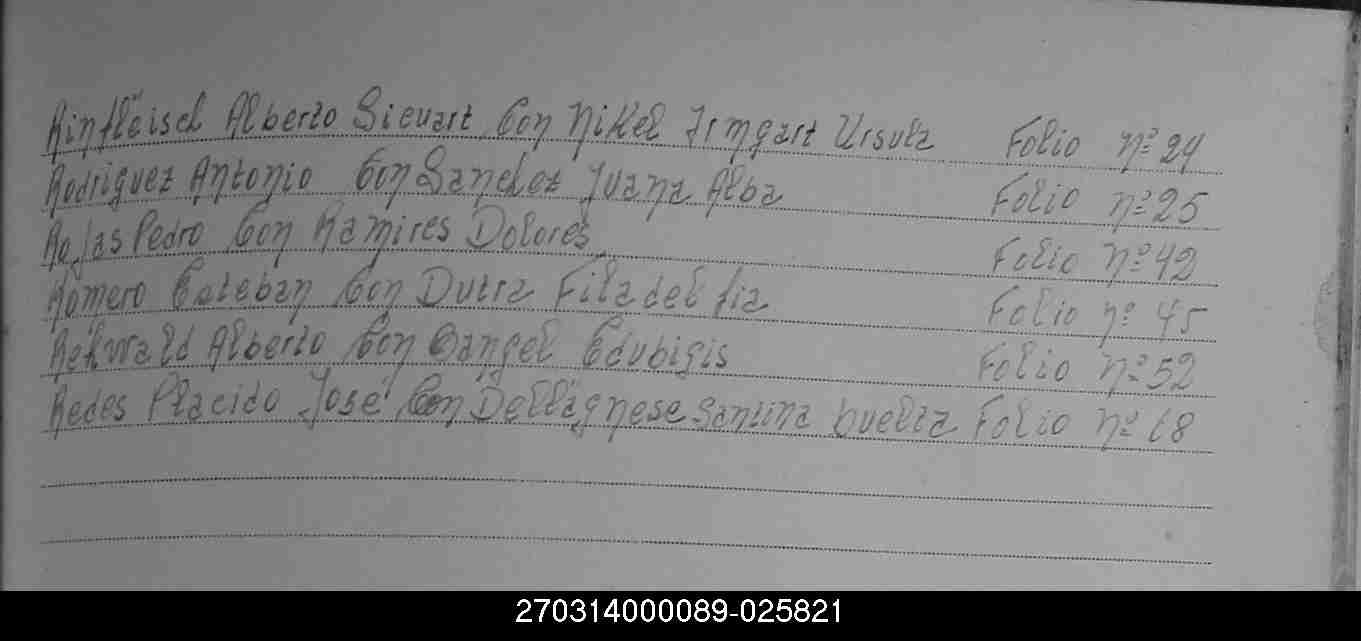 Rinfleisch Alberto Sieuart Con Nikel Irmgart Ursula Folio nº 24
Rodriguez Antonio Con Sanchez Juana Alba Folio nº 25
Rojas Pedro Con Ramires Dolores Folio nº 42
Romero Esteban Con Dutra Filadelfia Folio nº 45
Rehwald Alberto Con Dangel Edubigis Folio nº 52
Redes Placido José Con Dellagnese Santina Folio nº 68
270314000089-025821